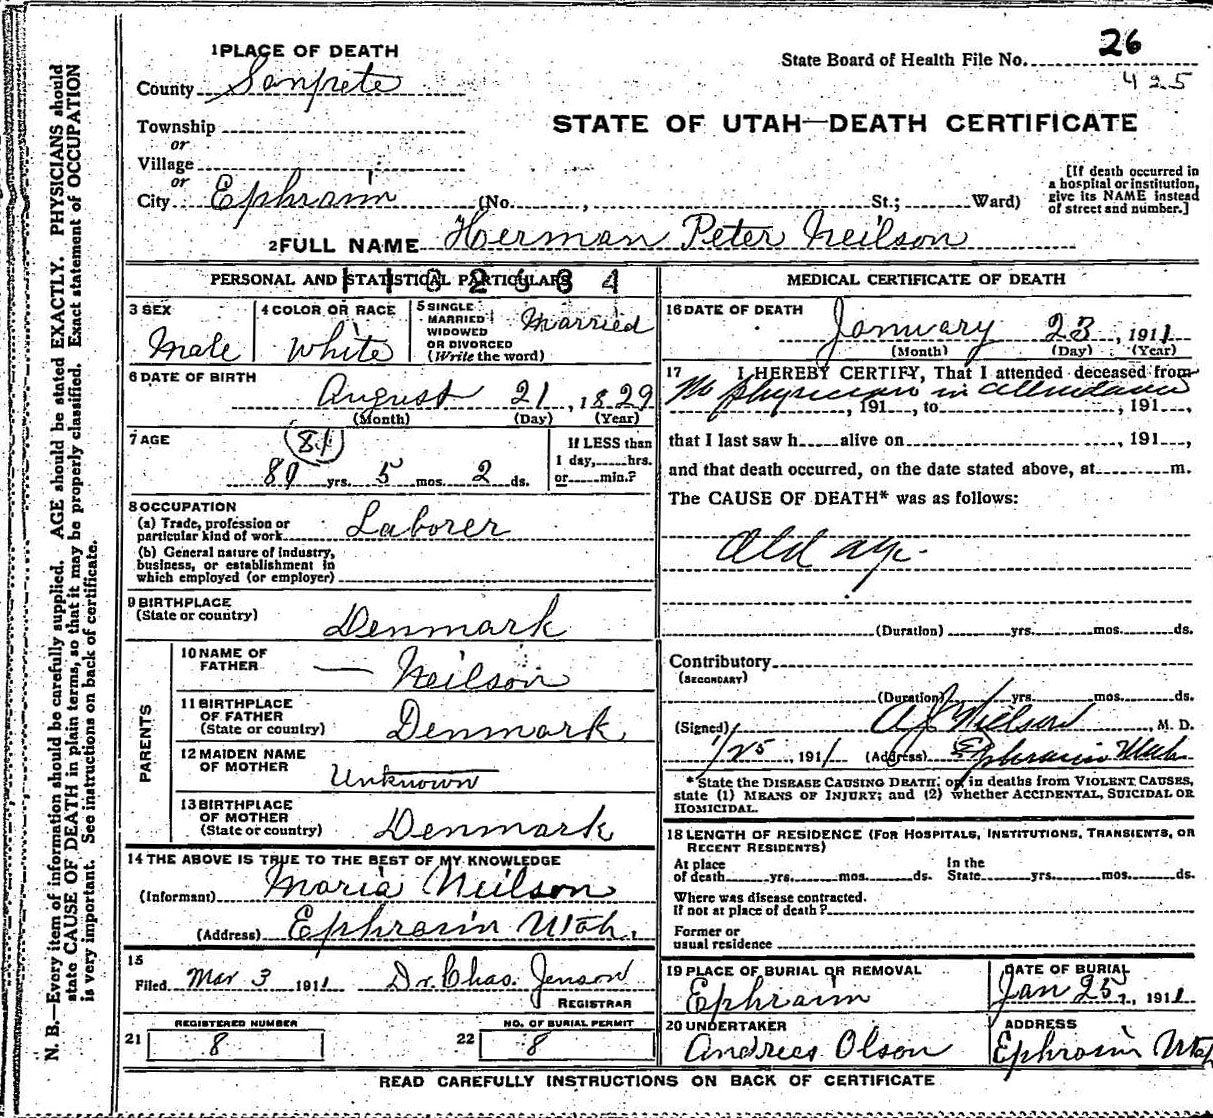 N. B.—Every item of information should be carefully supplied. AGE should be stated EXACTLY. PHYSICIANS should
state CAUSE OF DEATH in plain terms, so that it may be properly classified. Exact statement of OCCUPATION
is very important. See instructions on back of certificate.
1 PLACE OF DEATH
County Sanpete
Township
or
Village
or
City Ephraim (No. , St.; Ward)
State Board of Health File No. 26
425
STATE OF UTAH—DEATH CERTIFICATE
[If death occurred in
a hospital or institution,
give its NAME instead
of street and number.]
2 FULL NAME Herman Peter Neilson
PERSONAL AND STATISTICAL PARTICULARS
3 SEX
Male
4 COLOR OR RACE
White
5 SINGLE
MARRIED
WIDOWED
OR DIVORCED
(Write the word)
Married
6 DATE OF BIRTH
August 21, 1829
(Month) (Day) (Year)
7 AGE
(81)
89 yrs. 5 mos. 2 ds.
If LESS than
1 day, hrs.
or min.?
8 OCCUPATION
(a) Trade, profession or
particular kind of work Laborer
(b) General nature of industry,
business, or establishment in
which employed (or employer)
9 BIRTHPLACE
(State or country)
Denmark
PARENTS
10 NAME OF
FATHER — Neilson
11 BIRTHPLACE
OF FATHER
(State or country) Denmark
12 MAIDEN NAME
OF MOTHER
Unknown
13 BIRTHPLACE
OF MOTHER
(State or country) Denmark
14 THE ABOVE IS TRUE TO THE BEST OF MY KNOWLEDGE
(Informant) Maria Neilson
(Address) Ephraim Utah.
15
Filed Mar 3 1911 Dr. Chas. Jenson
REGISTRAR
21 REGISTERED NUMBER
8
22 NO. OF BURIAL PERMIT
8
MEDICAL CERTIFICATE OF DEATH
16 DATE OF DEATH
January 23, 1911
(Month) (Day) (Year)
17 I HEREBY CERTIFY, That I attended deceased from
No physician in attendance
, 191 , to , 191 ,
that I last saw h alive on , 191 ,
and that death occurred, on the date stated above, at m.
The CAUSE OF DEATH* was as follows:
Old age.
(Duration) yrs. mos. ds.
Contributory
(SECONDARY)
(Duration) yrs. mos. ds.
(Signed) Nielson M. D.
1/25, 1911 (Address) Ephraim Utah
*State the DISEASE CAUSING DEATH; or, in deaths from VIOLENT CAUSES,
state (1) MEANS OF INJURY; and (2) whether ACCIDENTAL, SUICIDAL OR
HOMICIDAL.
18 LENGTH OF RESIDENCE (FOR HOSPITALS, INSTITUTIONS, TRANSIENTS, OR
RECENT RESIDENTS)
At place
of death yrs. mos. ds.
In the
State yrs. mos. ds.
Where was disease contracted.
If not at place of death?
Former or
usual residence
19 PLACE OF BURIAL OR REMOVAL
Ephraim
DATE OF BURIAL
Jan 25, 1911
20 UNDERTAKER
Andrees Olson
ADDRESS
Ephraim Utah
READ CAREFULLY INSTRUCTIONS ON BACK OF CERTIFICATE